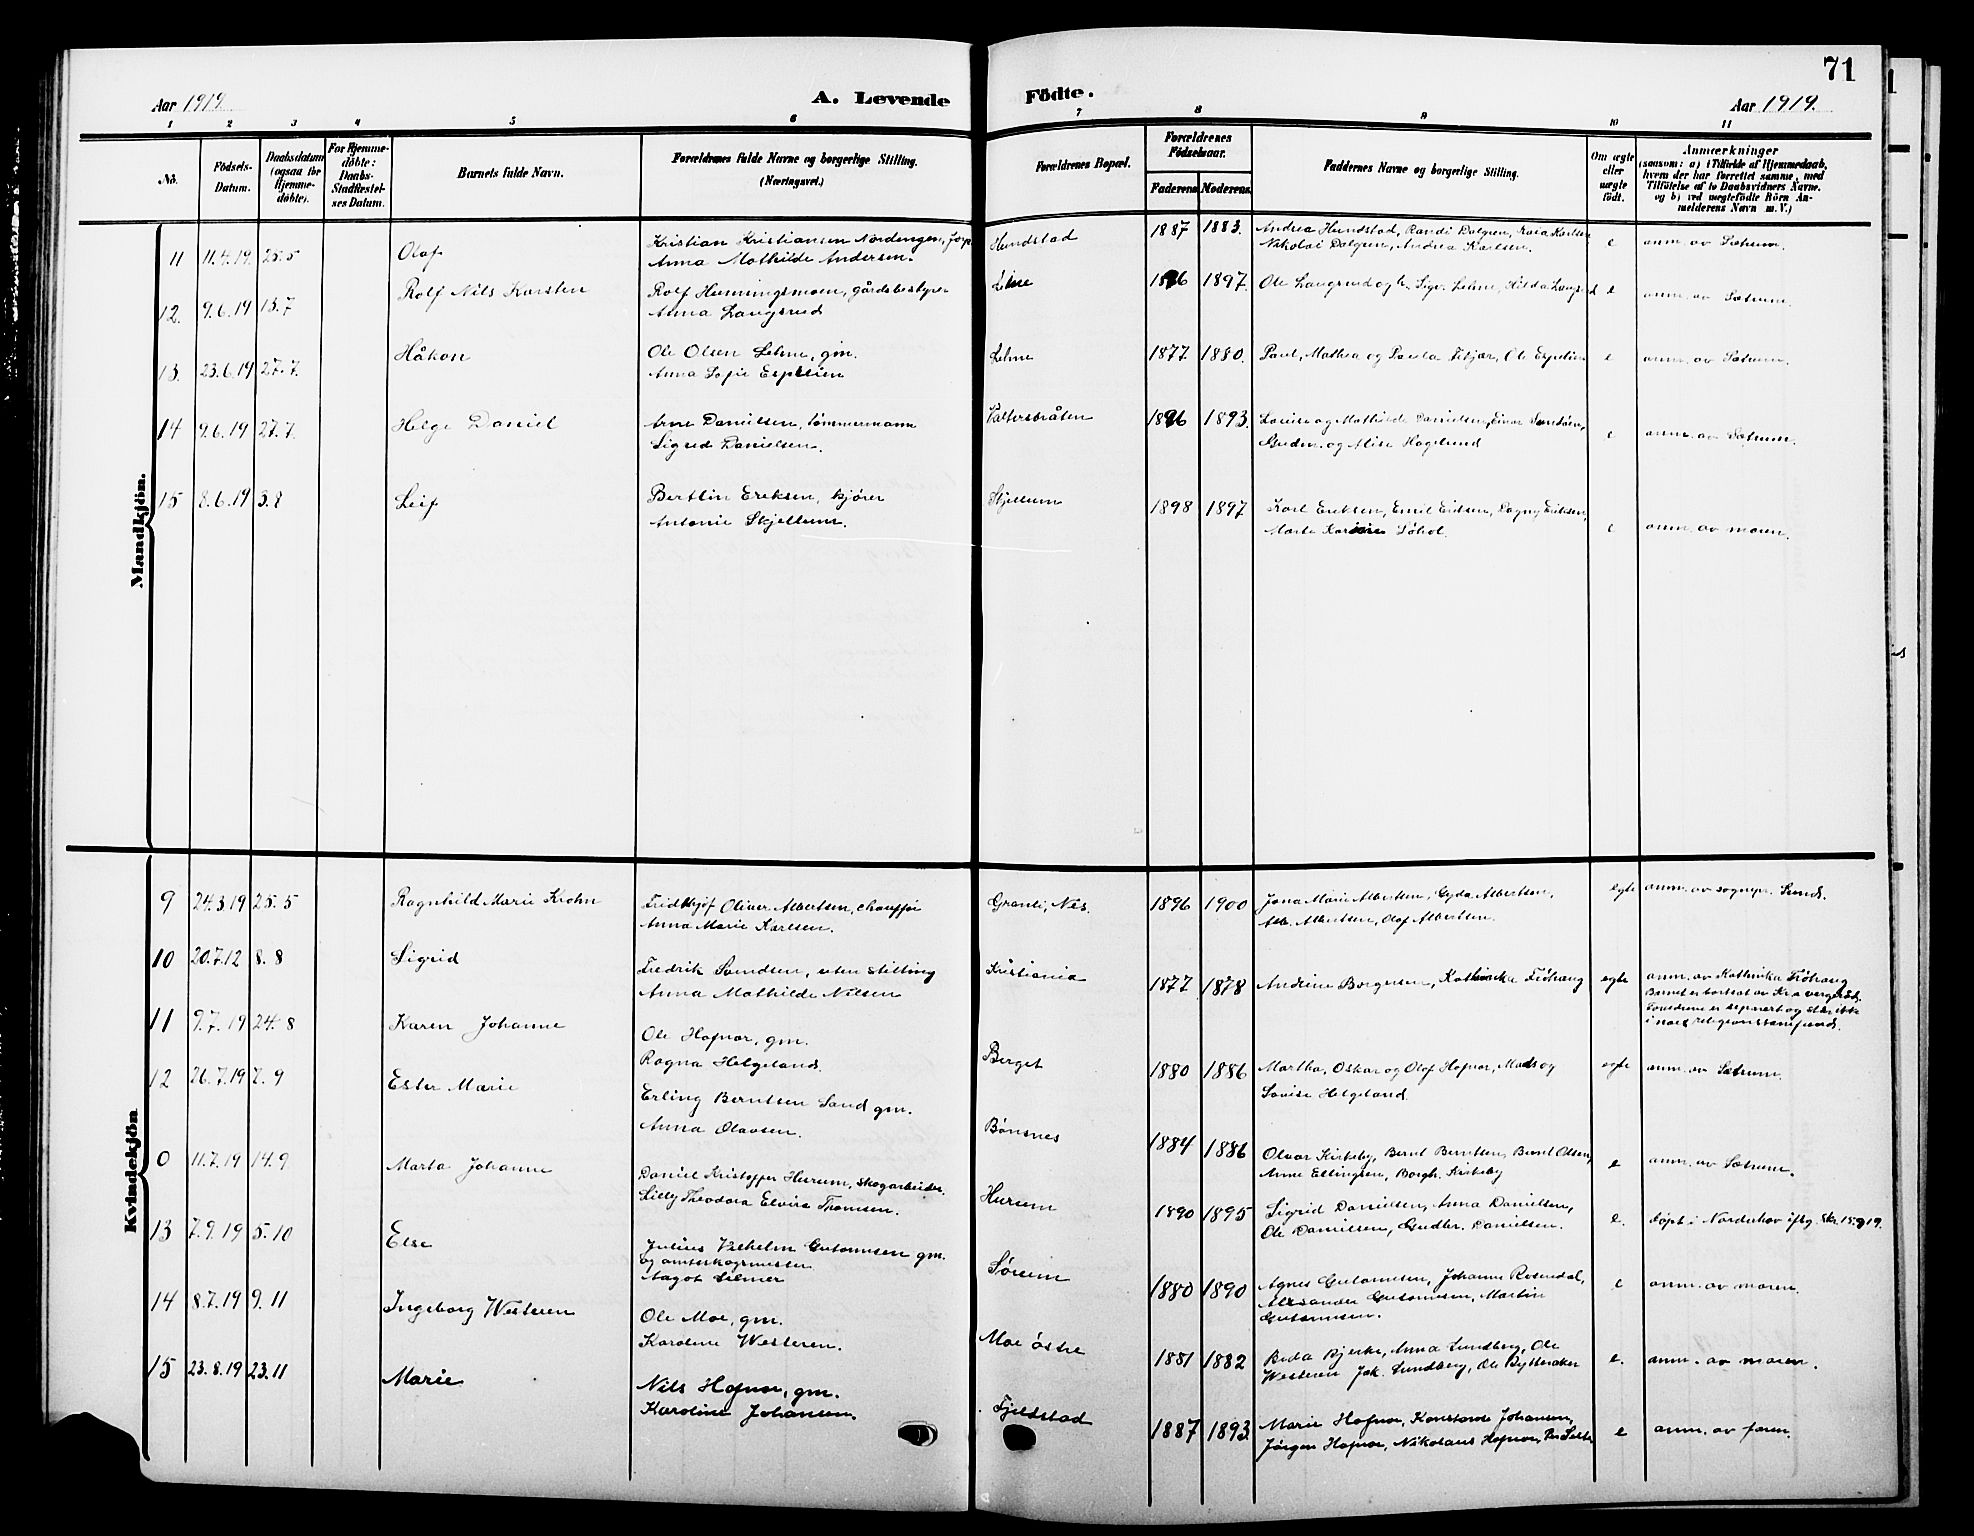 71
Aar 1919.
A. Levende
Födte.
Aar 1919.
1 2 3 4 5 6 7 8 9 10 11
No.
Födsels-
Datum.
Daabsdatum
(ogsaa for
Hjemme-
döbte).
For Hjemme-
döbte:
Daabs-
Stadfæstel-
ses Datum.
Barnets fulde Navn.
Forældrenes fulde Navne og borgerlige Stilling.
(Næringsvei.)
Forældrenes Bopæl.
Forældrenes
Födselsaar.
Faderens
Moderens
Faddernes Navne og borgerlige Stilling.
Om ægte
eller
uægte
födt.
Anmærkninger
(saasom: a) i Tilfælde af Hjemmedaab,
hvem der har forrettet samme, med
Tilföielse af to Daabsvidners Navne.
og b) ved uægtefödte Börn An-
melderens Navn m. V.)
Mandkjön.
11 11.4.19. 25.5 Olaf
Kristian Kristiansen Nordengen,
Anna Mathilde Andersen.
Hundstad 1887 1883.
Andrea Hundstad, Randi Dolgren, Rosa Karlsen
Nikolai Dolgren, Andrea Karlsen.
e anm. av Sætrum.
12. 9.6.19 13.7 Rolf Nils Karsten
Rolf Hemmingsmoen, gårdsbestyrer
Anna Langsrud
Lehne 1896 1897.
Ole Langsrud og h. Sigv. Lehne, Hilda Langsrud
e anm. av Sætrum.
13. 23.6.19 27.7. Håkon
Ole Olsen Lehne, gm.
Anna Sofie Espelien
Lehne 1877. 1880.
Paul, Mathea og Paula Fitjar, Ole Espelien
e anm. av Sætrum.
14 9.6.19 27.7. Helge Daniel
Arne Danielsen, tømmermann
Sigrid Danielsen.
Valtersbråten 1896 1893.
Lovise og Mathilde Danielsen, Einar Sandøen,
Gudm. og Alise Hagelund
e anm. av Sætrum.
15 8.6.19 3.8 Leif
Bertlin Eriksen, kjører
Antonie Skjellum.
Skjellum 1898 1897
Karl Eriksen, Emil Eriksen, Dagny Eriksen,
Marte Karine Søhol.
e anm. av moren.
Kvindekjön
9 24.3.19 25.5 Ragnhild Marie Krohn
Fridthjof Oliver Albertsen, chauffør
Anna Marie Karlsen.
Granli, Nes. 1896 1900
Jona Marie Albertsen, Gyda Albertsen,
Alb. Albertsen, Olaf Albertsen.
egte anm. av sognepr. Sund.
10 20.7.12 8.8 Sigrid
Fredrik Svendsen, uten stilling
Anna Mathilde Nilsen
Kristiania 1877 1878
Andrine Borgersen, Kathinka Frøhaug
egte anm. av Kathinka Frøhaug
Barnet er bortsat av Kr.a vergeråd.
Foreldrene er separert og står ikke
i noe religionssamfund.
11 9.7.19 24.8 Karen Johanne
Ole Hofnor, gm.
Ragna Helgeland.
Berget 1880 1886
Martha, Oskar og Olaf Hofnor, Mads og
Lovise Helgeland.
egte anm. av Sætrum.
12 26.7.19 7.9 Ester Marie
Erling Berntsen Sand gm.
Anna Olavsen.
Bønsnes 1884 1886
Olvar Kirkeby, Bernt Berntsen, Bernt Olsen,
Anne Ellingsen, Borgh. Kirkeby
e anm. av Sætrum.
0 11.7.19 14.9 Marta Johanne
Daniel Kristoffer Hurum, skogarbeider.
Lilly Theodora Elvira Tromsen.
Hurum 1890 1895
Sigrid Danielsen, Anna Danielsen,
Ole Danielsen, Gudbr. Danielsen.
e. døpt i Norderhov iflg. skr. 15.9 19.
13 7.9.19 5.10 Else
Julius Vilhelm Gutormsen gm.
og amtsskogmester
Aagot Selmer
Søreim 1880 1890
Agnes Gutormsen, Johanne Rosendal,
Alexander Gutormsen, Martin
Gutormsen.
e anm. av moren.
14 8.7.19 9.11 Ingeborg Westeren
Ole Moe, gm.
Karoline Westeren.
Moe östre 1881 1882
Beda Bjerke, Anna Lundberg, Ole
Westeren Jak. Lundberg, Ole Bytteraker
e. anm. av moren.
15 23.8.19 23.11 Marie
Nils Hofnor, gm.
Karoline Johansen.
Fjeldstad 1887 1893.
Marie Hofnor, Konstanse Johansen,
Jørgen Hofnor, Nikolaus Hofnor, Per Selte
e anm. av faren.